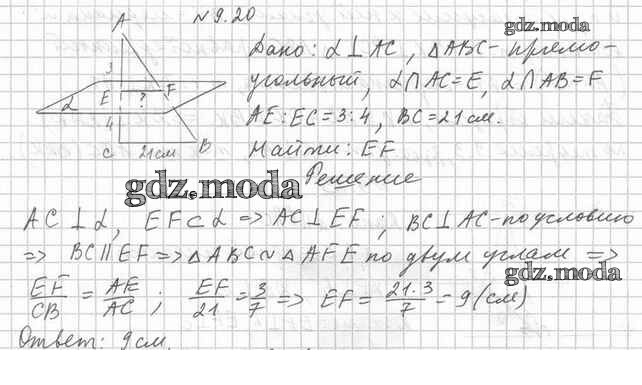 №9.20
gdz.moda
Дано: α⊥AC, △ABC-прямо-
угольный, α∩AC=E, α∩AB=F
AE:EC=3:4, BC=21см.
Найти: EF
A
3
α
E
?
F
4
C
21см
B
gdz.moda
Решение
AC⊥α, EF⊂α => AC⊥EF; BC⊥AC-по условию
=> BC∥EF => △ABC ~ △AFE по двум углам =>
gdz.moda
EF/CB = AE/AC; EF/21 = 3/7 => EF = 21·3/7 = 9 (см)
Ответ: 9см.